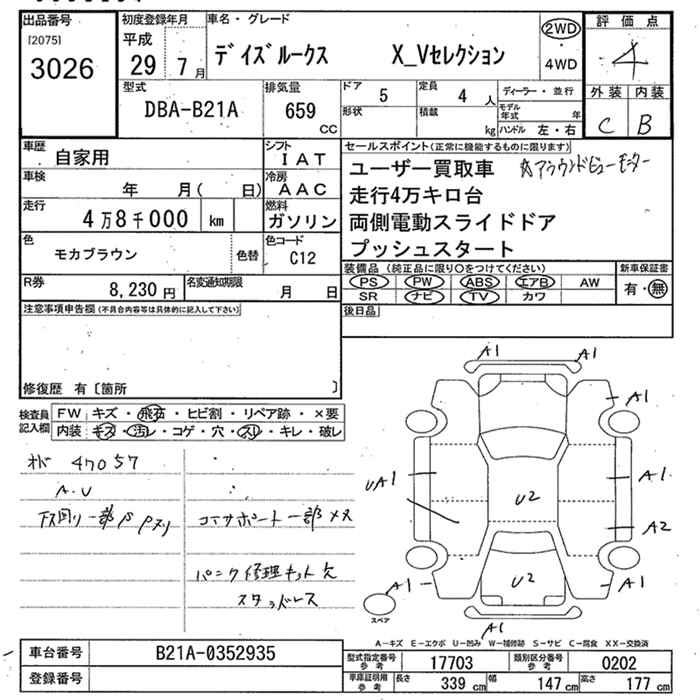 出品番号
[2075]
3026
初度登録年月
平成
29 7 月
車名・グレード
デイズルークス X_Vセレクション
2WD
・
4WD
評価点
4
外装 内装
C B
型式
DBA-B21A
排気量
659
CC
ドア 5
形状
定員 4 人
積載 kg
ディーラー・並行
モデル年式 年
ハンドル 左・右
車歴
自家用
シフト
IAT
車検
年 月( 日)
冷房
AAC
走行
4万8千000 km
燃料
ガソリン
色
モカブラウン
色替
色コード
C12
R券
8,230 円
名変通知期限
月 日
セールスポイント(正常に機能するものに限ります)
ユーザー買取車
アラウンドビューモニター
走行4万キロ台
両側電動スライドドア
プッシュスタート
装備品(純正品に限り○をつけてください)
PS PW ABS エアB AW
SR ナビ TV カワ
新車保証書
有・無
後日品
注意事項申告欄(不具合内容等は具体的に記入して下さい)
修復歴 有〔箇所 〕
検査員記入欄
FW キズ・飛石・ヒビ割・リペア跡・×要
内装 キズ・汚レ・コゲ・穴・スレ・キレ・破レ
47057
A.V
下回り一部
一部
パンク修理キット欠
スタッドレス
A1 A1
A1
UA1
A1
U2
A2
A1
U2
A1
A1
スペア
A-キズ E-エクボ U-凹み W-補修跡 S-サビ C-腐食 XX-交換済
車台番号
B21A-0352935
登録番号
型式指定番号参考
17703
類別区分番号参考
0202
車庫証明用参考
長さ 339 cm
幅 147 cm
高さ 177 cm